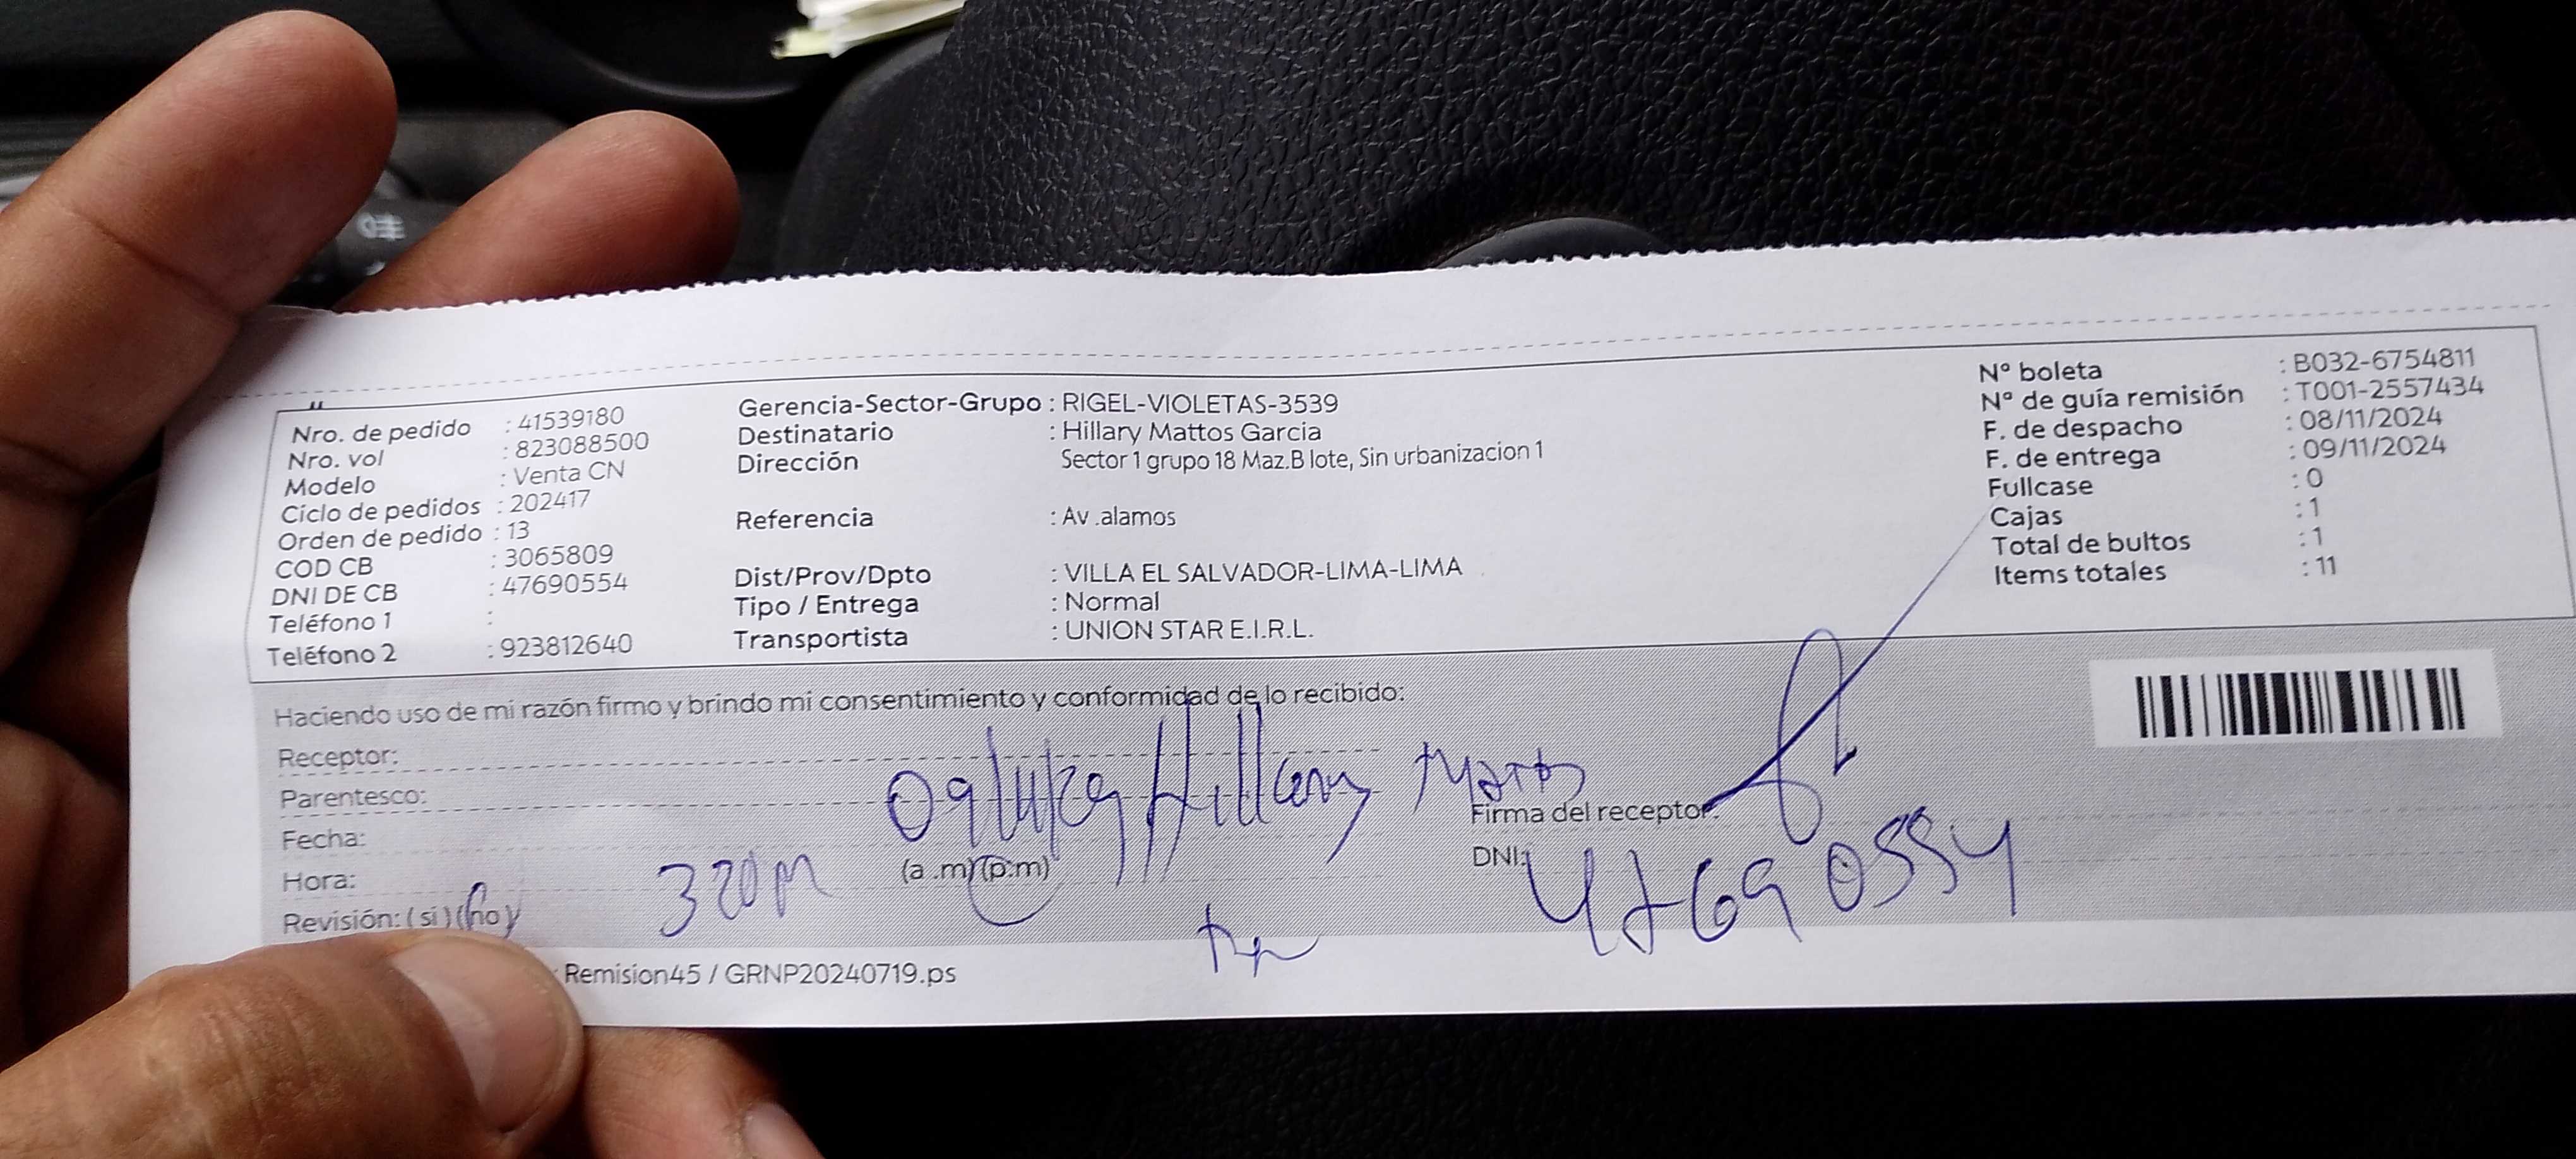 Nro. de pedido : 41539180
Nro. vol : 823088500
Modelo : Venta CN
Ciclo de pedidos : 202417
Orden de pedido : 13
COD CB : 3065809
DNI DE CB : 47690554
Teléfono 1 :
Teléfono 2 : 923812640
Gerencia-Sector-Grupo : RIGEL-VIOLETAS-3539
Destinatario : Hillary Mattos Garcia
Dirección Sector 1 grupo 18 Maz.B lote, Sin urbanizacion 1
Referencia : Av .alamos
Dist/Prov/Dpto : VILLA EL SALVADOR-LIMA-LIMA
Tipo / Entrega : Normal
Transportista : UNION STAR E.I.R.L.
Nº boleta : B032-6754811
Nº de guía remisión : T001-2557434
F. de despacho : 08/11/2024
F. de entrega : 09/11/2024
Fullcase : 0
Cajas : 1
Total de bultos : 1
Items totales : 11
Haciendo uso de mi razón firmo y brindo mi consentimiento y conformidad de lo recibido:
Receptor: Hillary Mattos
Parentesco:
Fecha:
Hora: 320 (a .m)(p.m)
Revisión: (si) (no)
Firma del receptor:
DNI: 47690554
Remision45 / GRNP20240719.ps